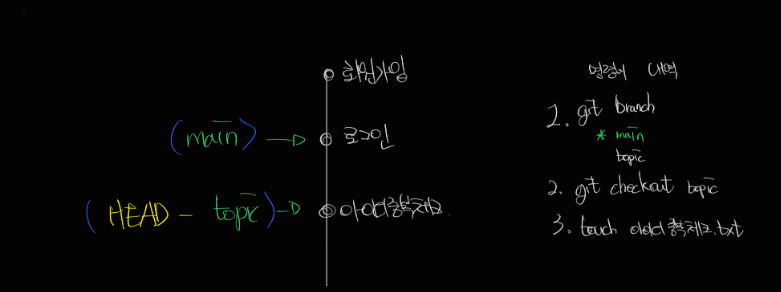 회원가입
(main) →
로그인
(HEAD - topic) →
아이디중복체크
명령어 내역
1. git branch
* main
topic
2. git checkout topic
3. touch 아이디중복체크.txt